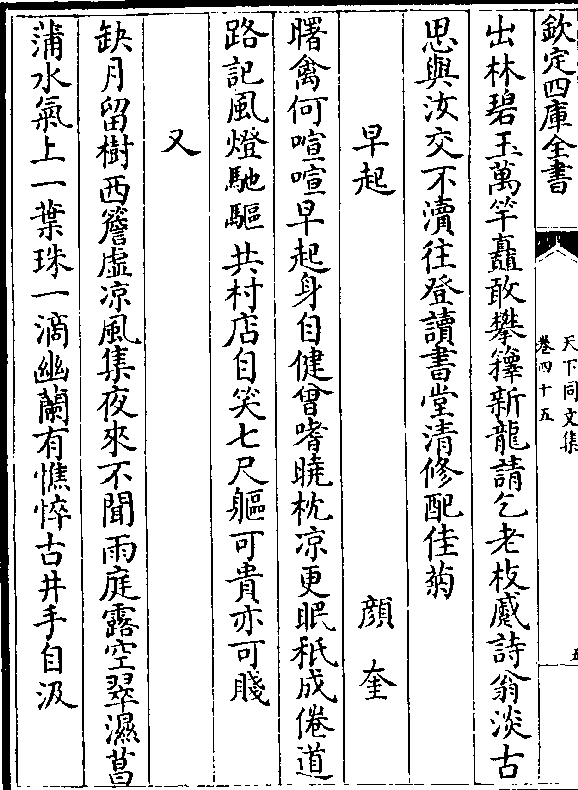 欽定四庫全書
天下同文集
卷四十五
五
出林碧玉萬竿矗敢攀籜新龍請乞老枝蹙詩翁淡古
思與汝交不瀆往登讀書堂清修配佳菊
早起
顔奎
曙禽何喧喧早起身自健曾嗜曉枕凉更眠秖成倦道
路記風燈馳驅共村店自笑七尺軀可貴亦可賤
又
缺月留樹西簷虛凉風集夜來不聞雨庭露空翠濕菖
蒲水氣上一葉珠一滴幽蘭有憔悴古井手自汲